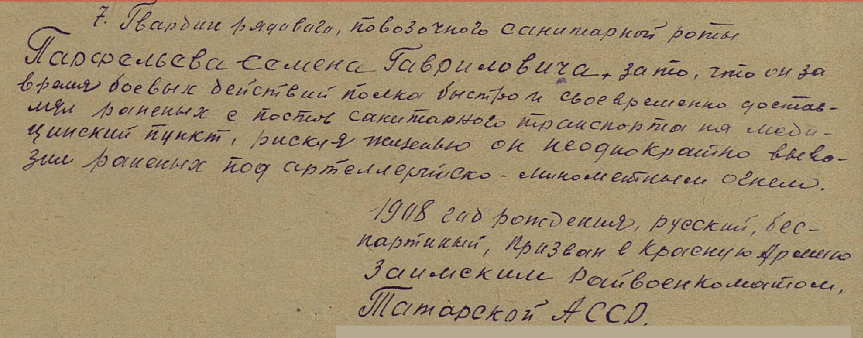 7. Гвардии рядового, повозочного санитарной роты
Парфельева Семена Гавриловича, за то, что он за
время боевых действий полка быстро и своевременно достав-
лял раненых с постов санитарного транспорта на меди-
цинский пункт, рискуя жизнью он неоднократно выво-
зил раненых под артеллерийско-минометным огнем.
1908 год рождения, русский, бес-
партийный, призван в Красную Армию
Заимским Райвоенкоматом,
Татарской АССР.